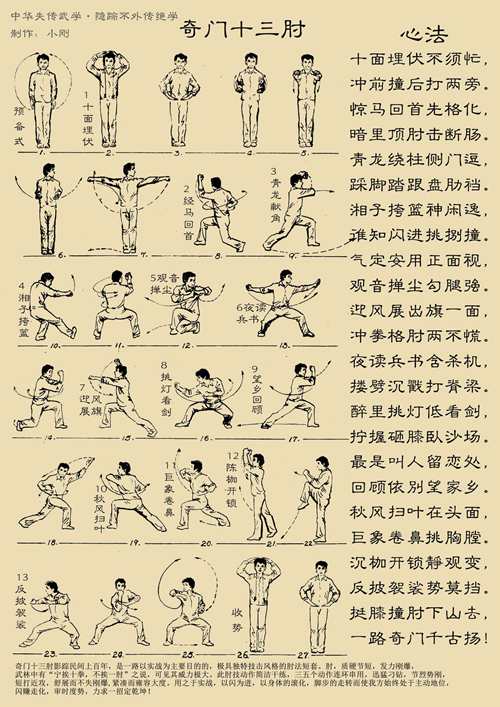 中华失传武学·隐踪不外传绝学
制作：小刚
奇门十三肘
心法
十面埋伏不须忙，
冲前撞后打两旁。
惊马回首先格化，
暗里顶肘击断肠。
青龙绕柱侧门逗，
踩脚踏跟盘肋裆。
湘子挎篮神闲逸，
谁知闪进挑捌撞。
气定安用正面视，
观音掸尘勾腿强。
迎风展出旗一面，
冲拳格肘两不慌。
夜读兵书含杀机，
搂劈沉戳打脊梁。
醉里挑灯低看剑，
拧握砸膝卧沙场。
最是叫人留恋处，
回顾依别望家乡。
秋风扫叶在头面，
巨象卷鼻挑胸膛。
沉枷开锁静观变，
反披袈裟势莫挡。
挺膝撞肘下山去，
一路奇门千古扬！
预备式
1十面埋伏
1.
2.
3.
4.
5.
2经马回首
3青龙献角
6.
7.
8.
9.
4湘子挎篮
5观音掸尘
6夜读兵书
10.
11.
12.
13.
7迎风展旗
8挑灯看剑
9望乡回顾
14.
15.
16.
17.
10秋风扫叶
11巨象卷鼻
12陈枷开锁
18.
19.
20.
21.
22.
13反披袈裟
收势
23.
24.
25.
26.
27.
奇门十三肘影踪民间上百年，是一路以实战为主要目的的，极具独特技击风格的肘法短套。肘，质硬节短，发力刚爆，
武林中有“宁挨十拳，不挨一肘”之说，可见其威力极大。此肘技动作简洁干练，三五个动作连环串用，迅猛刁钻，节烈势刚，
短打近攻，舒展而不失刚爆，紧凑而雍容大度。用之于实战，以闪为进，以身体的滚化，脚步的走转而使我方始终处于主动地位，
闪赚走化，审时度势，力求一招定乾坤！